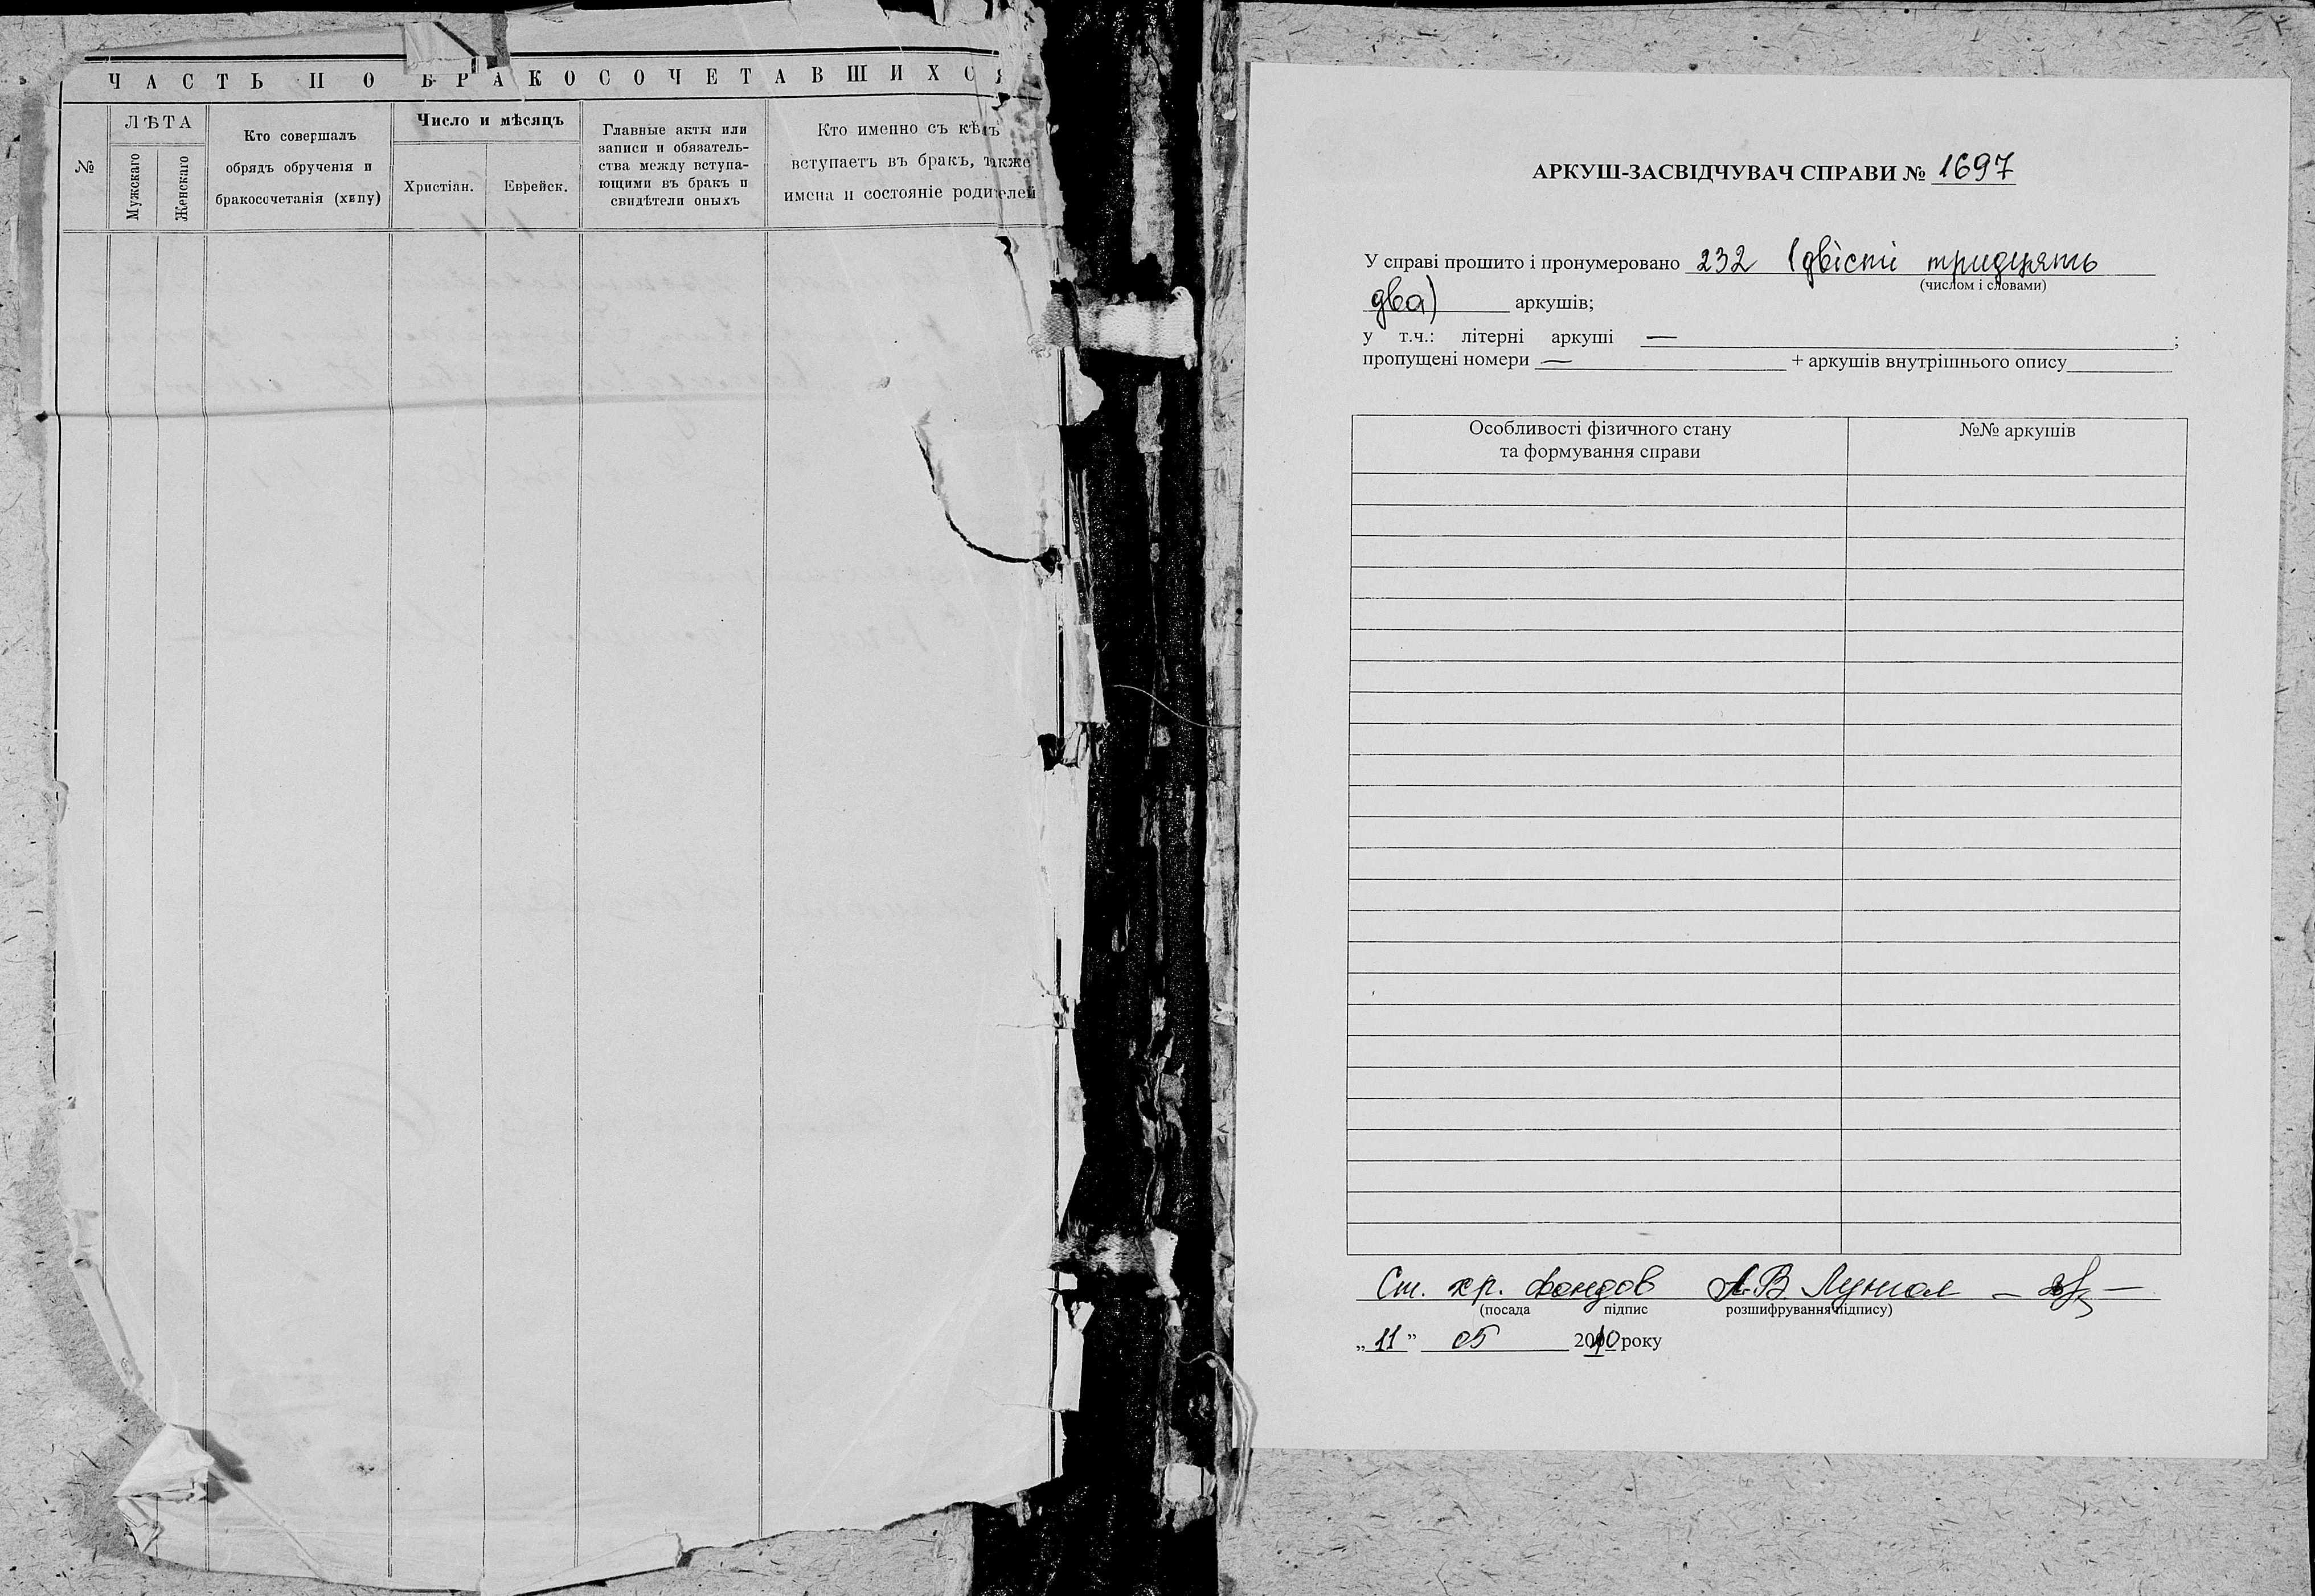 ЧАСТЬ II О БРАКОСОЧЕТАВШИХСЯ
№
ЛѢТА
Мужскаго
Женскаго
Кто совершалъ
обрядъ обрученія и
бракосочетанія (хипу)
Число и мѣсяцъ
Христіан.
Еврейск.
Главные акты или
записи и обязатель-
ства между вступа-
ющими въ бракъ и
свидѣтели оныхъ
Кто именно съ кѣмъ
вступаетъ въ бракъ, также
имена и состояніе родителей
АРКУШ-ЗАСВІДЧУВАЧ СПРАВИ № 1697
У справі прошито і пронумеровано 232 (двісті тридцять
(числом і словами)
два) аркушів;
у т.ч.: літерні аркуші —;
пропущені номери — + аркушів внутрішнього опису
Особливості фізичного стану
та формування справи
№№ аркушів
Ст. хр. фондов А.В.
(посада підпис розшифрування підпису)
„11” 05 2010 року